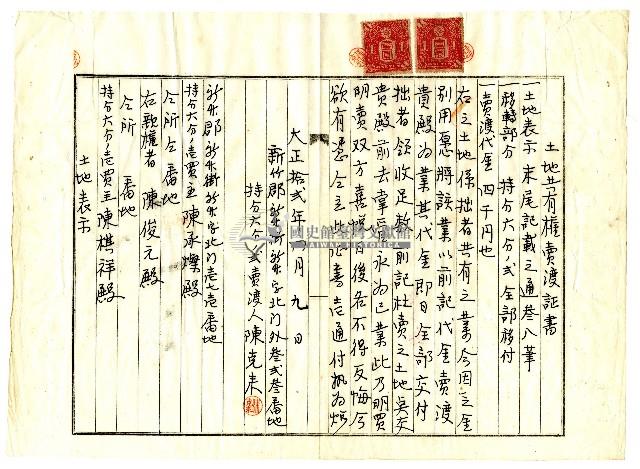 土地共有權賣渡証書
一土地表示 末尾記載之通叁八筆
一移轉部分 持分六分ノ弍全部移付
一賣渡代金 四千円也
右之土地係拙者共有之業今因乏金
別用愿將該業以前記代金賣渡
貴殿為業其代金即日全部交付
拙者領收足訖前記杜賣之土地
貴殿前去掌管永為己業此乃明買
明賣双方喜悅日後各不得反悔今
欲有憑令立此証書壱通付執為炤
大正拾弍年 月九日
新竹郡新竹街新竹字北门外叁弍叁番地
持分六分ノ弍賣渡人 陳克耒
新竹郡新竹街新竹字北门壱七壱番地
持分六分ノ壱買主 陳承燦殿
仝所仝番地
右親權者 陳俊元殿
仝所 番地
持分六分ノ壱買主 陳棋祥殿
土地表示
國史館臺灣文獻館
TAIWAN HISTORICA